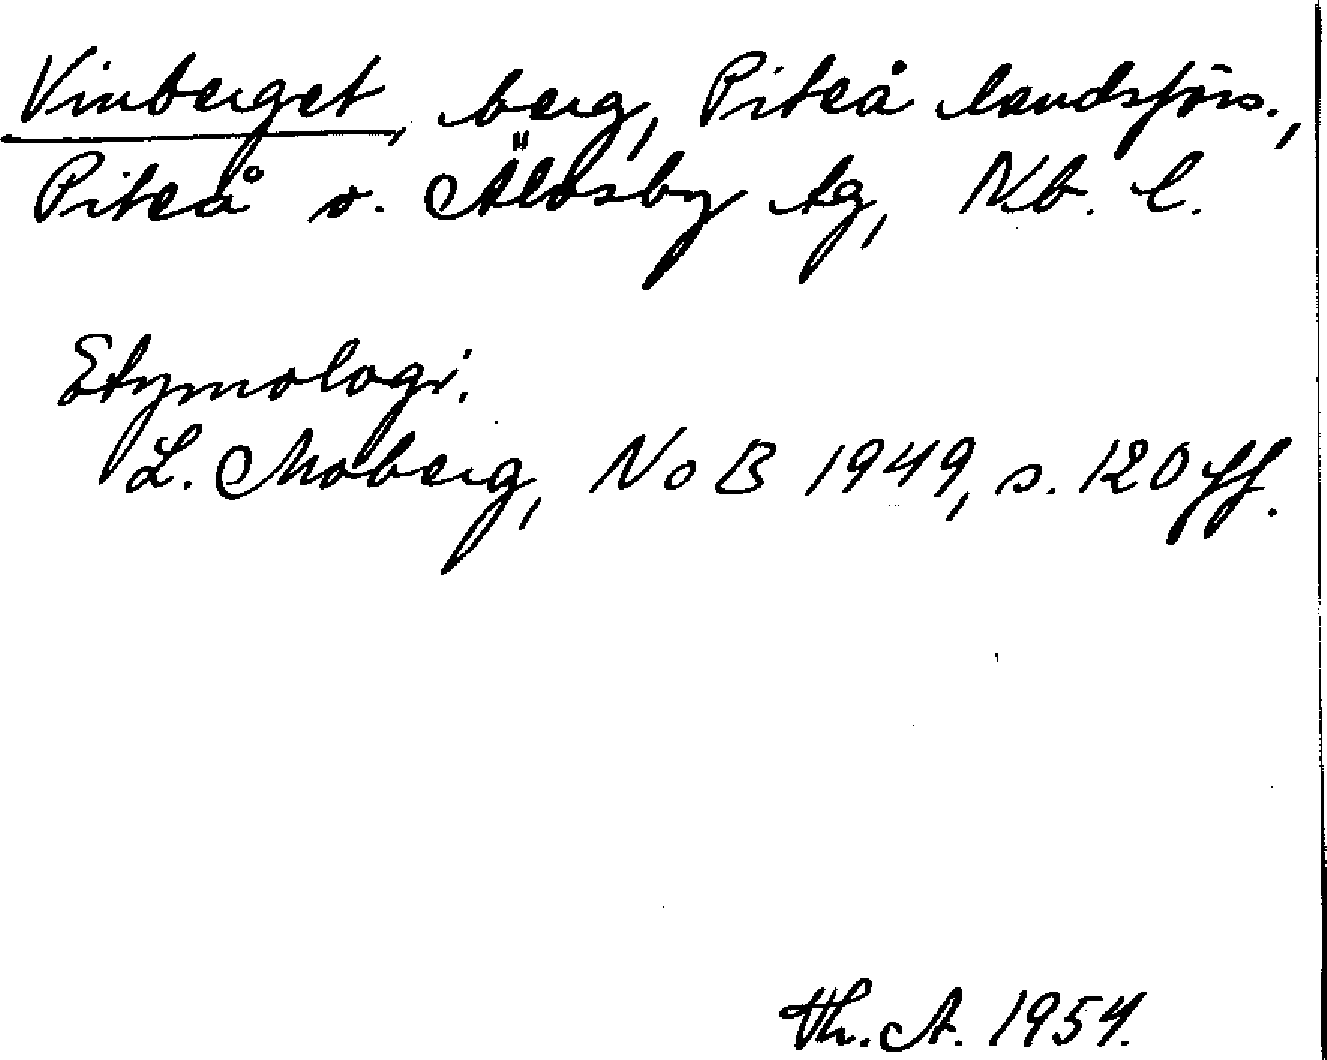 Vinberget, berg, Piteå landsförs.,
Piteå o. Älvsby tg, Nb. l.
Etymologi.
L. Moberg, NoB 1949, s. 120 ff.
Th. A. 1954.